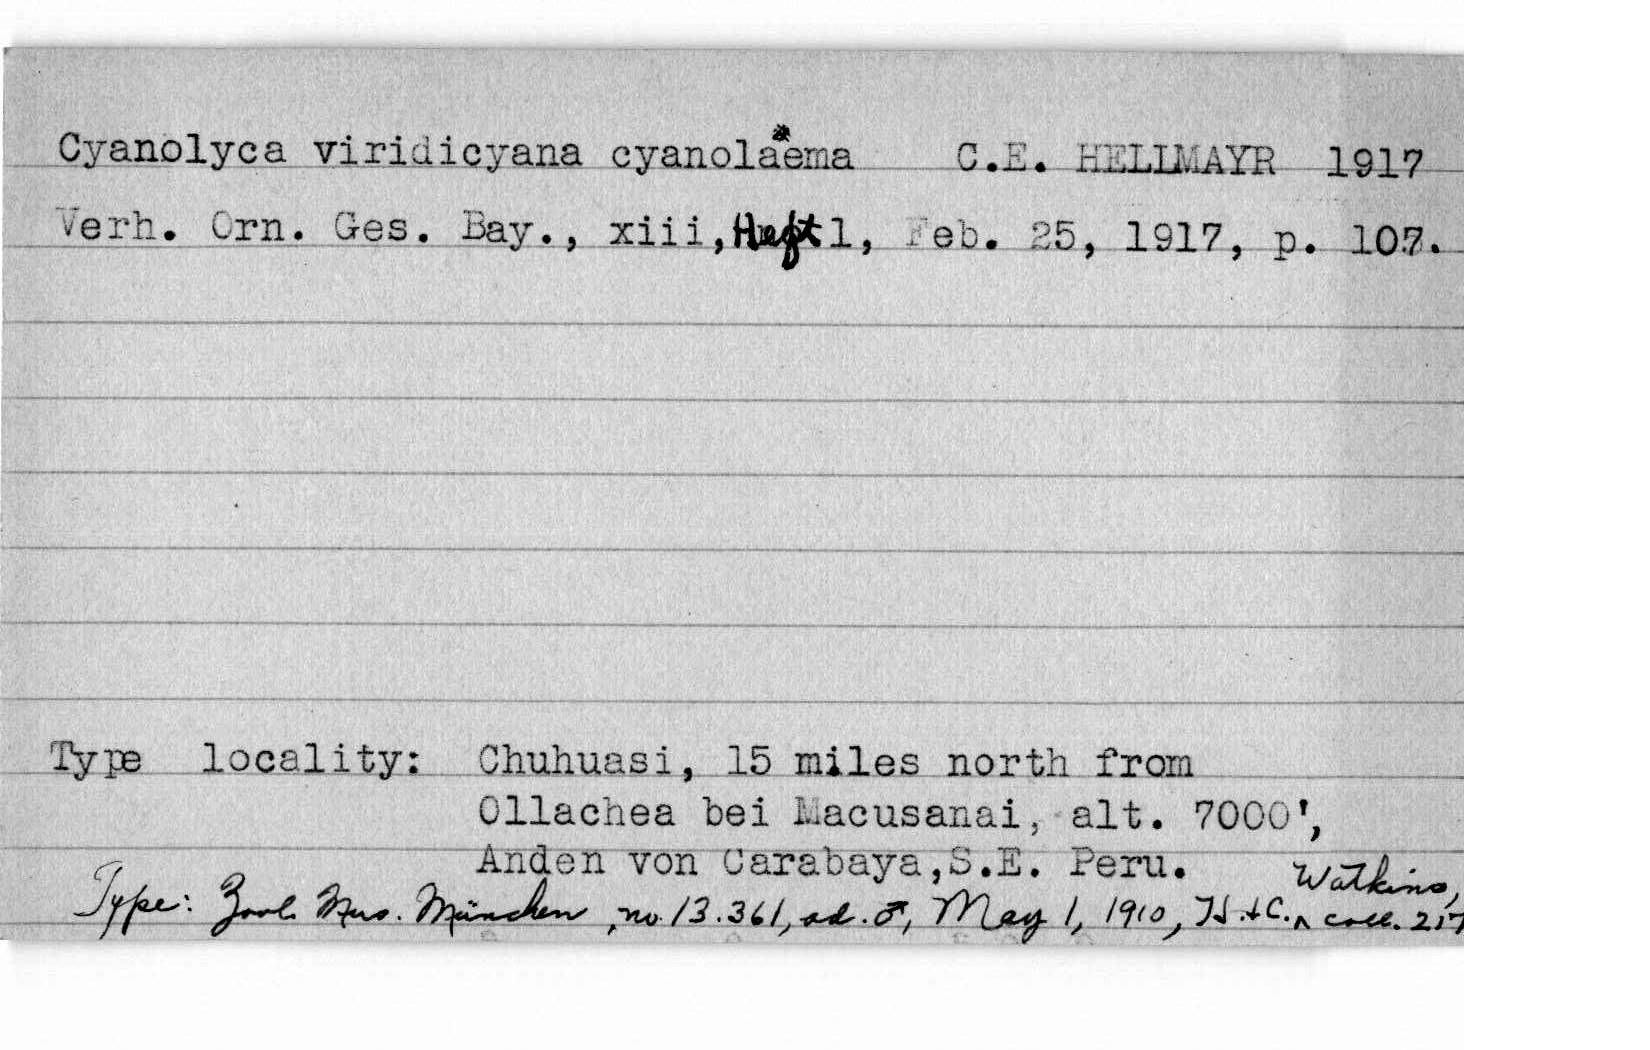 Cyanolyca viridicyana cyanolaema C.E. HELLMAYR 1917
Verh. Orn. Ges. Bay., xiii, Heft 1, Feb. 25, 1917, p. 107.
Type locality: Chuhuasi, 15 miles north from
Ollachea bei Macusanai, alt. 7000',
Anden von Carabaya, S.E. Peru.
Type: Zool. Mus. München, no. 13.361, ad. ♂, May 1, 1910, H. & C. Watkins, coll. 217